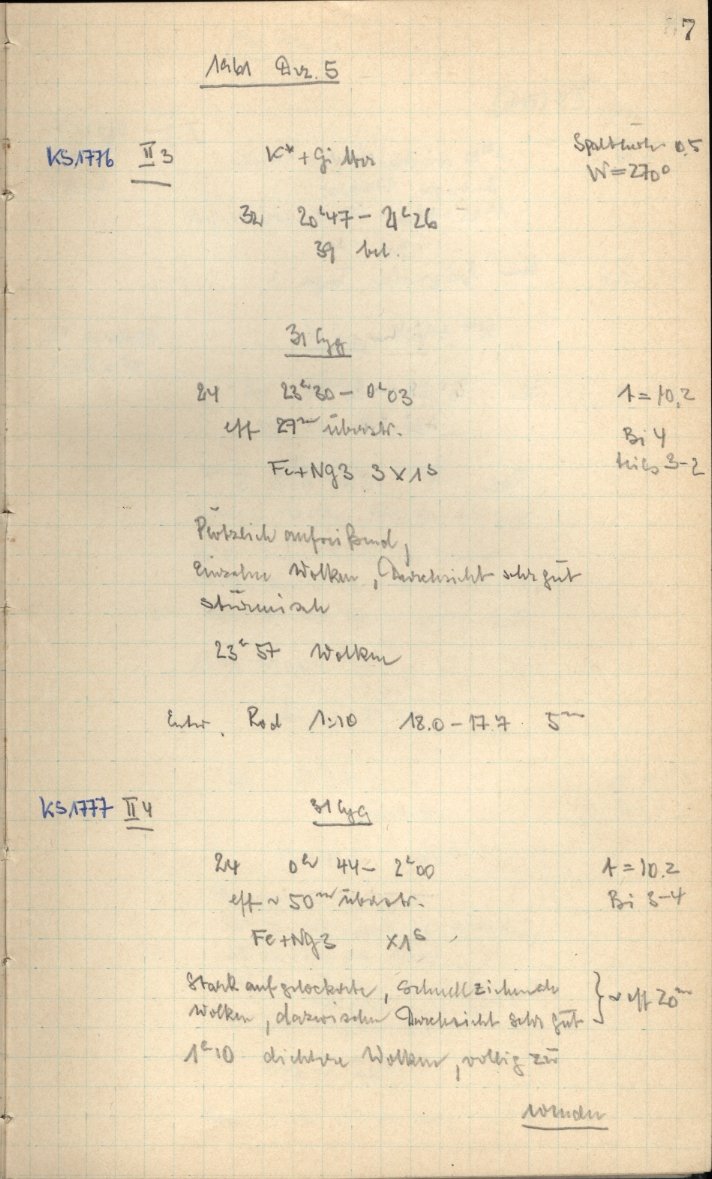 7
1961 Dez. 5
KS1776 II 3 K* + Gitter Spalthöhe 0.5
W = 270°
32 20ʰ47 - 21ʰ26
39 bel.
31 Cyg
24 23ʰ30 - 0ʰ03 t = 10,2
eff 29ᵐ überstr. Bi 4
Fe+Ng3 3 x 1ˢ teils 3-2
Plötzlich aufreißend,
Einzelne Wolken, Durchsicht sehr gut
stürmisch
23ʰ57 Wolken
Entw. Rod 1:10 18.0 - 17.7 5ᵐ
KS1777 II 4 31 Cyg
24 0ʰ 44 - 2ʰ00 t = 10.2
eff ~ 50ᵐ überstr. Bi 3-4
Fe+Ng3 x1ˢ
Stark aufgelockerte, schnellziehende
Wolken, dazwischen Durchsicht sehr gut } ~ eff 20ᵐ
1ʰ10 dichtere Wolken, völlig zu
wenden